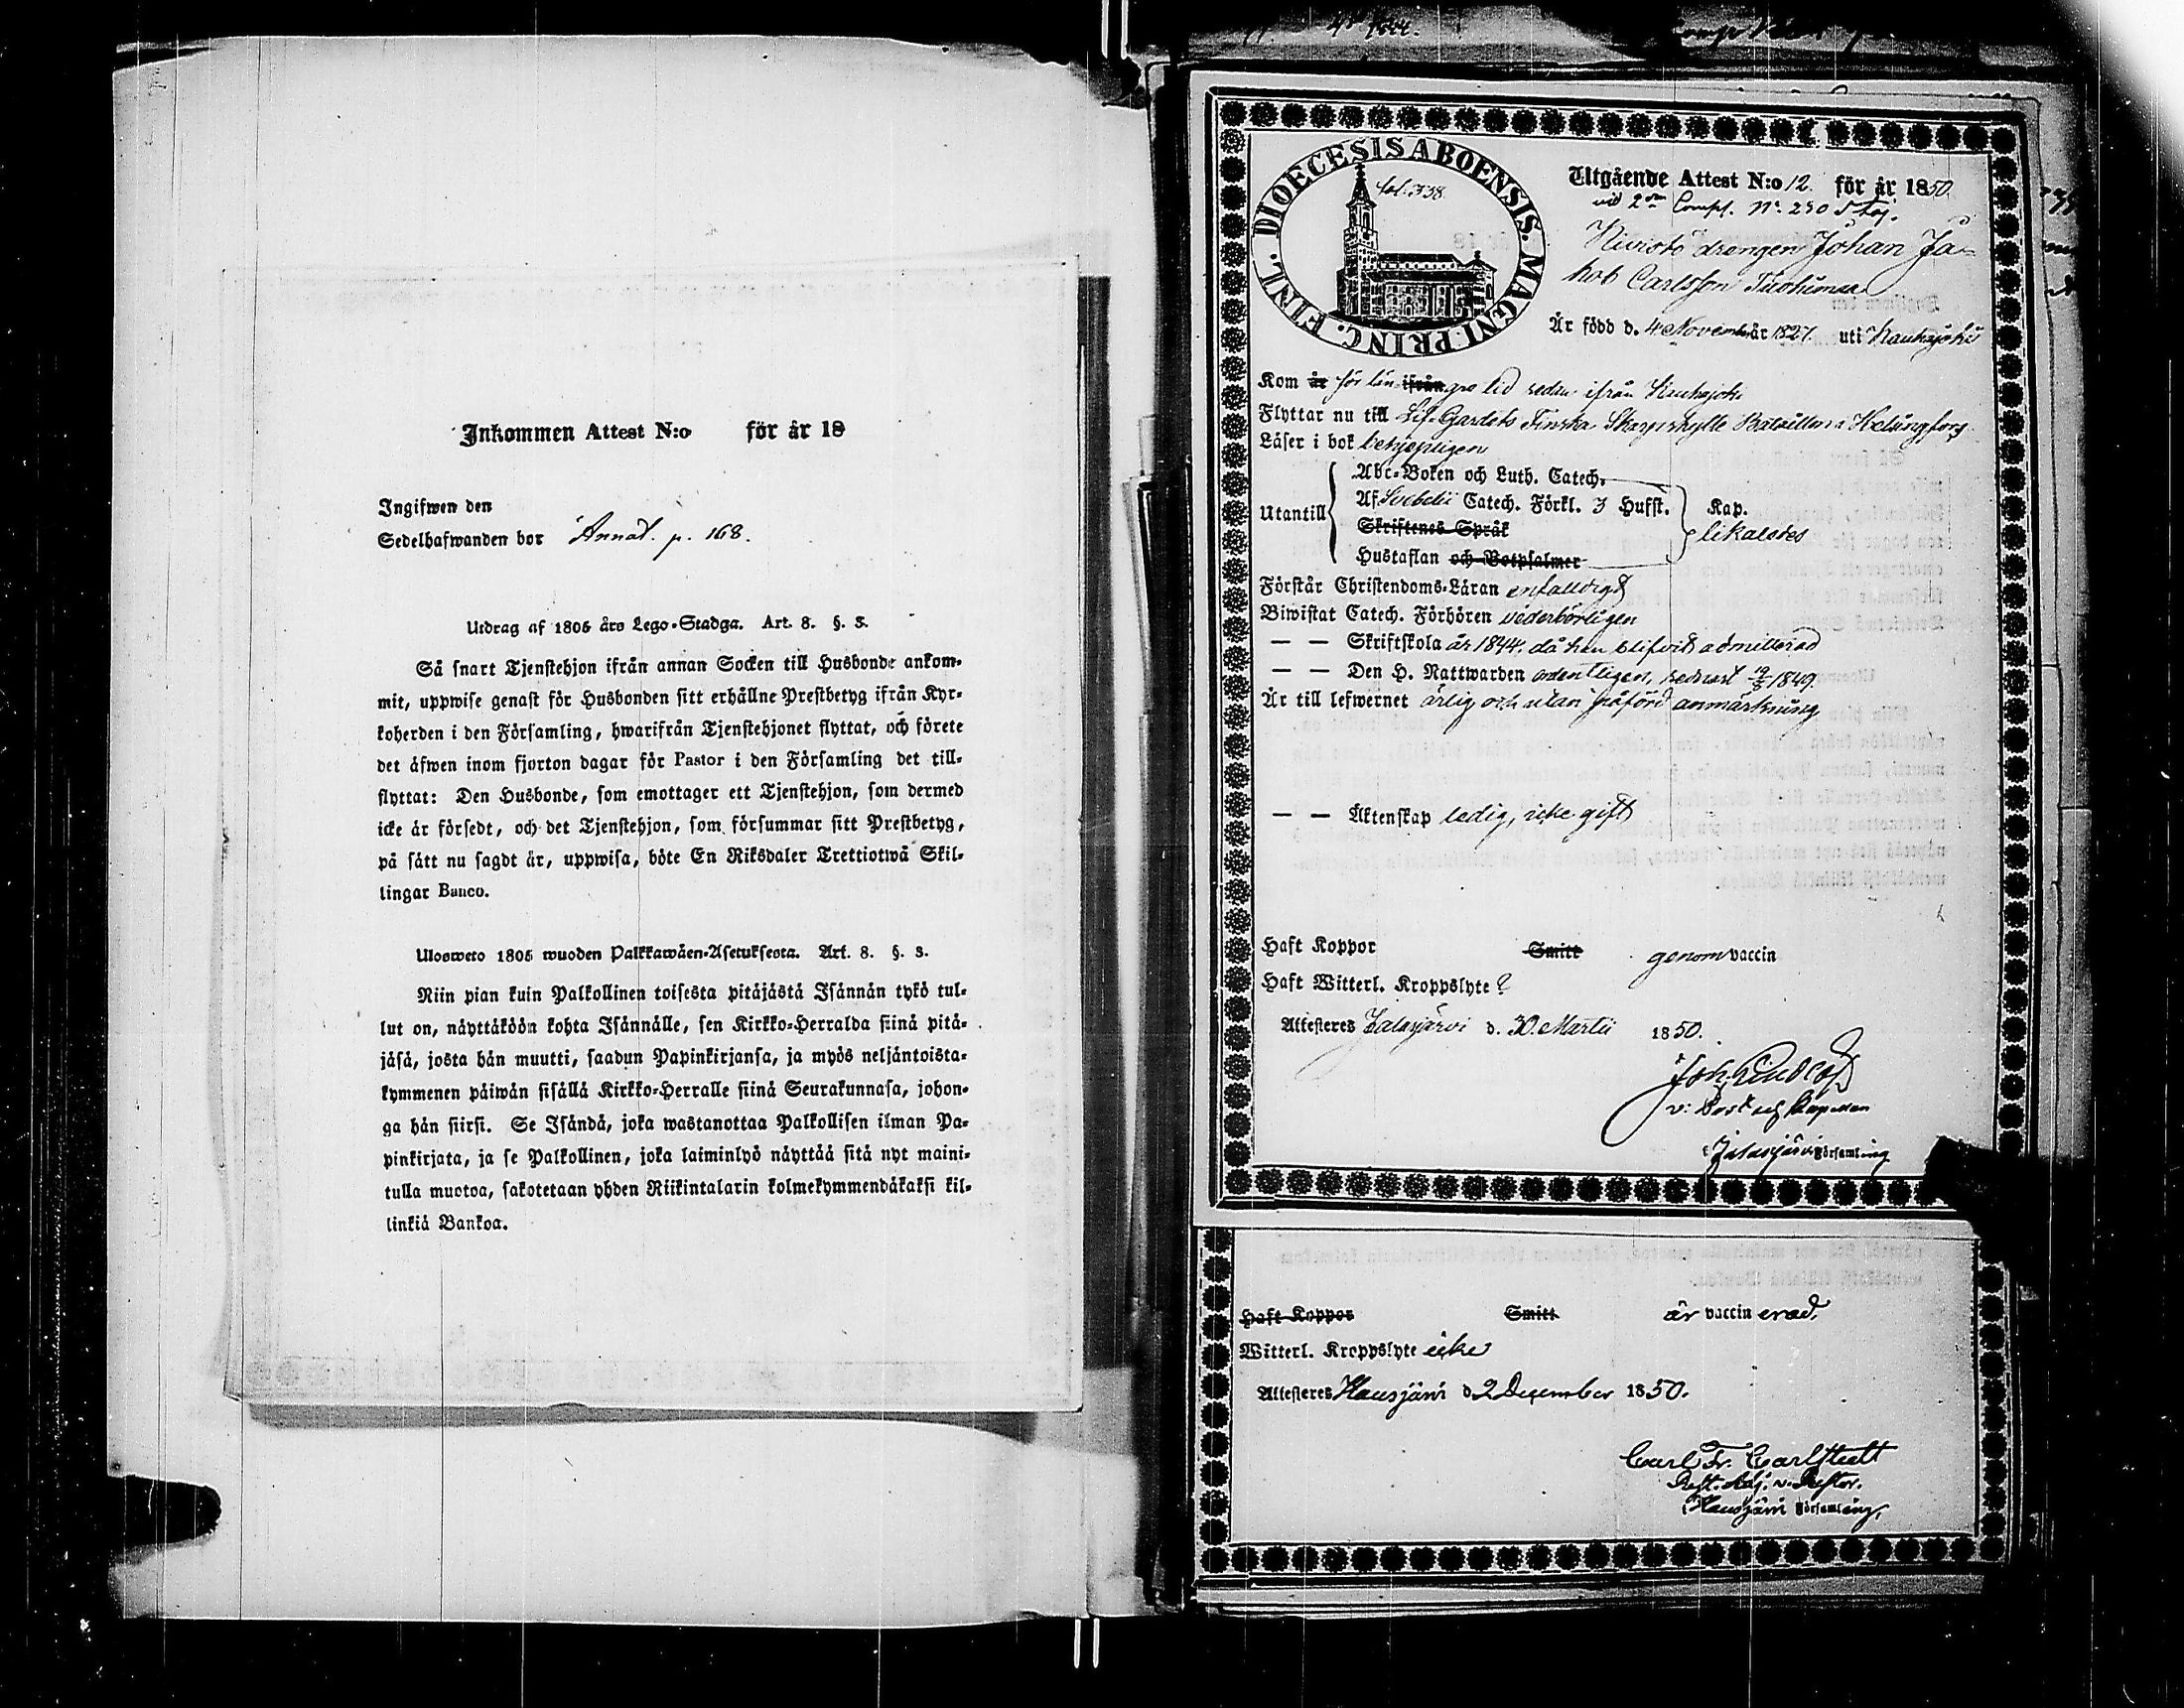 Inkommen Attest N:o för år 18
Ingifwen den
Sedelhafwanden bor Annat. p. 168.
Utdrag af 1805 års Lego-Stadga. Art. 8. §. 3.
Så snart Tjenstehjon ifrån annan Socken till Husbonde ankom-
mit, uppwise genast för Husbonden sitt erhållne Prestbetyg ifrån Kyr-
koherden i den Församling, hwarifrån Tjenstehjonet flyttat, och förete
det äfwen inom fjorton dagar för Pastor i den Församling det till-
flyttat: Den Husbonde, som emottager ett Tjenstehjon, som dermed
icke är försedt, och det Tjenstehjon, som försummar sitt Prestbetyg,
på sätt nu sagdt är, uppwisa, böte En Riksdaler Trettiotwå Skil-
lingar Banco.
Ulosweto 1805 wuoden Palkkawäen-Asetuksesta. Art. 8. §. 3.
Niin pian kuin Palkollinen toisesta pitäjästä Isännän tykö tul-
lut on, näyttäköön kohta Isännälle, sen Kirkko-Herralda siinä pitä-
jäsä, josta hän muutti, saadun Papinkirjansa, ja myös neljäntoista-
kymmenen päiwän sisällä Kirkko-Herralle siinä Seurakunnasa, johon-
ga hän siirsi. Se Isändä, joka wastanottaa Palkollisen ilman Pa-
pinkirjata, ja se Palkollinen, joka laiminlyö näyttää sitä nyt maini-
tulla muotoa, sakotetaan yhden Riikintalarin kolmekymmendäkaksi kil-
linkiä Bankoa.
DIOECESIS ABOENSIS. MAGNI PRINC. FINL.
fol. 338.
Utgående Attest N:o 12. för år 1850.
vid 2dra Comp. No 230
drengen Johan Ja-
kob Carlsson Tuohimaa
Är född d. 4 November år 1827. uti Kauhajoki
Kom år för ifrån tid sedan ifrån Kauhajoki
Flyttar nu till Lif-Gardets Finska Skarpskytte Bataillon i Helsingfors
Läser i bok
Utantill
Abc-Boken och Luth. Catech.
Af Svebelii Catech. Förkl. 3 Hufst. Kap.
Skriftenes Språk
likaledes
Hustaflan och Botpsalmer
Förstår Christendoms-Läran enfalldigt
Biwistat Catech. Förhören vederbörligen
— — Skriftskola år 1844. då han blifvit admitterad
— — Den H. Nattwarden ordentligen, sednast 19/8 1849.
Är till lefwernet ärlig och utan påförd anmärkning
— — Äktenskap ledig, icke gift
Haft Koppor Smitt genom vaccin
Haft Witterl. Kroppslyte ?
Attesteres Jalasjärvi d. 30. Martii 1850.
Joh.
v: Past och Capellan
i Jalasjärvi Församling
Haft Koppor Smitt är vaccin erad.
Witterl. Kroppslyte icke
Attesteres Hausjärvi d 2 December 1850.
Carl Fr. Carlstedt
Adj. v. Pastor.
i Hausjärvi Församling.